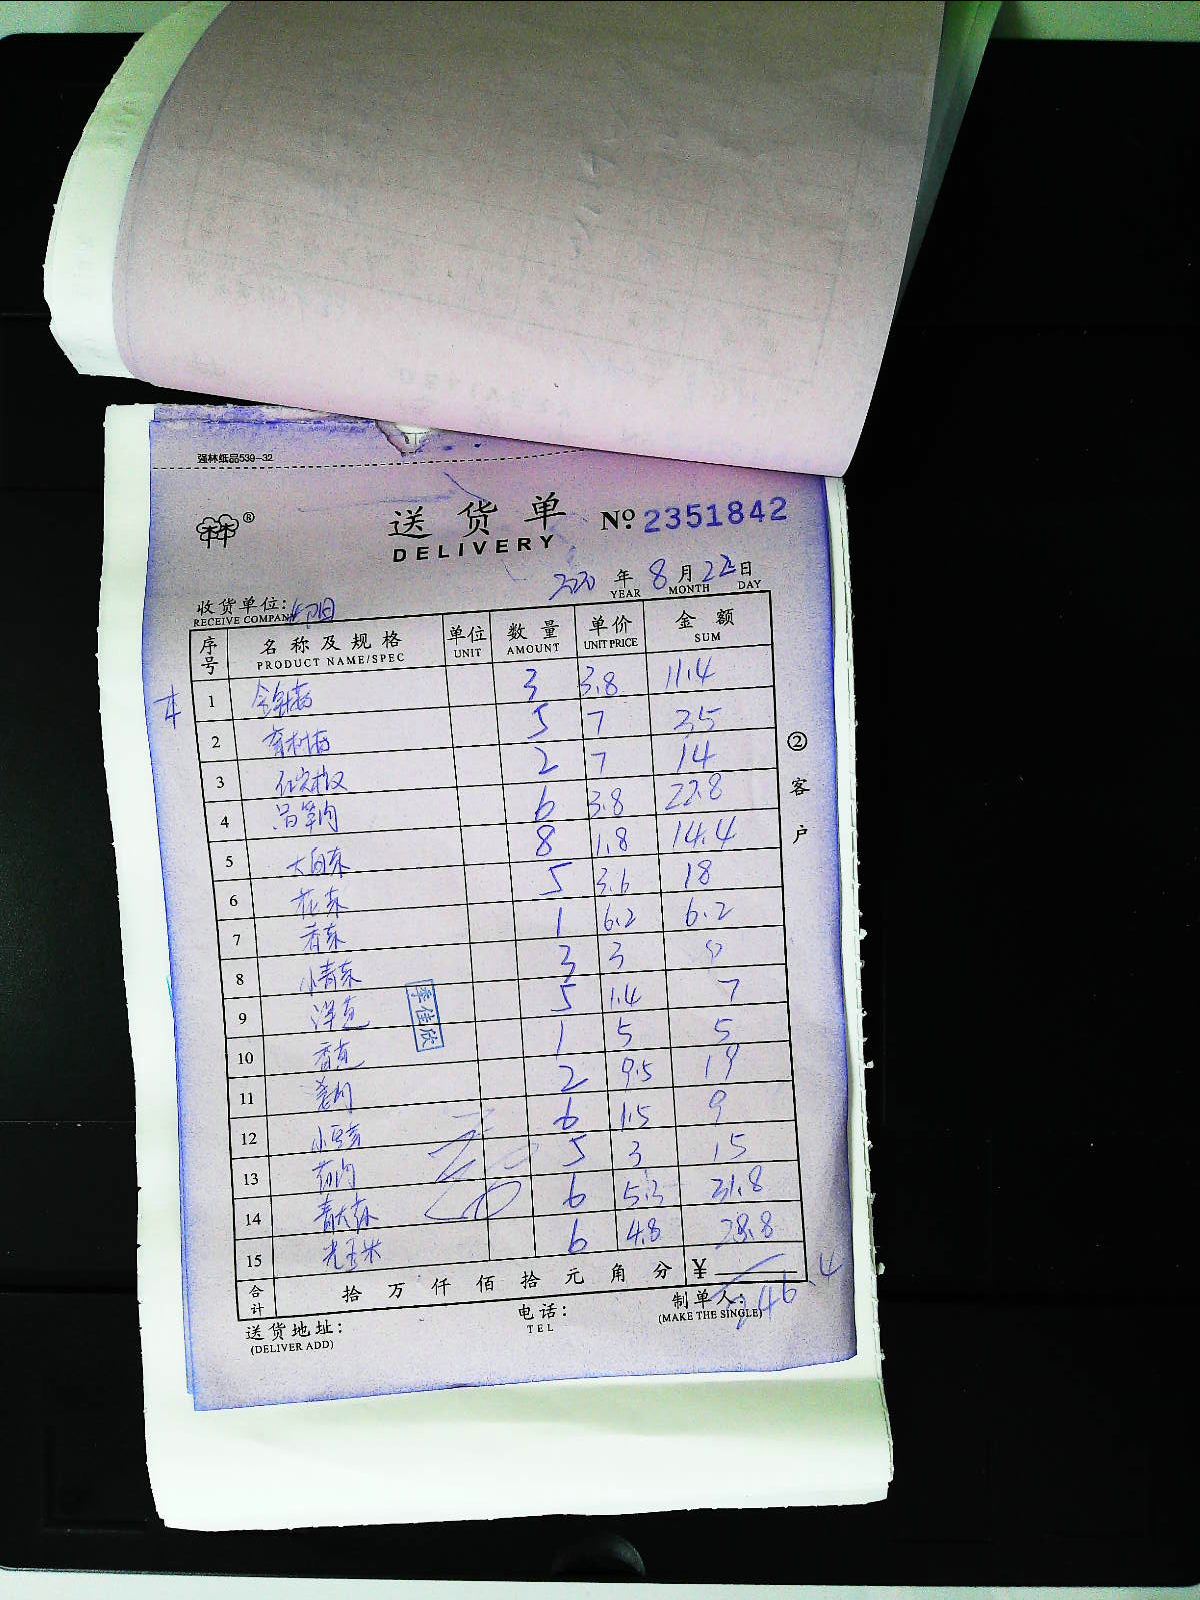 强林纸品539-32
送货单 № 2351842
DELIVERY
2020 年 8 月 22 日
YEAR MONTH DAY
收货单位:
RECEIVE COMPANY
序号 名称及规格 单位 数量 单价 金额
PRODUCT NAME/SPEC UNIT AMOUNT UNIT PRICE SUM
1 3 3.8 11.4
2 5 7 35
3 2 7 14
4 6 3.8 22.8
5 大白菜 8 1.8 14.4
6 花菜 5 3.6 18
7 香菜 1 6.2 6.2
8 小青菜 3 3 9
9 洋葱 5 1.4 7
10 香葱 1 5 5
11 2 9.5 19
12 6 1.5 9
13 5 3 15
14 6 5.3 31.8
15 老玉米 6 4.8 28.8
李佳欣
② 客户
合计 拾 万 仟 佰 拾 元 角 分 ¥
送货地址: 电话: 制单人:
(DELIVER ADD) TEL (MAKE THE SINGLE)